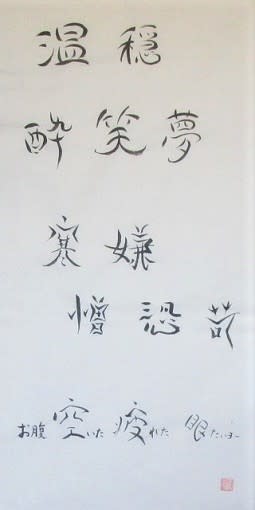 温 穏
酔 笑 夢
寒 嫌
憎 恐 苛
お腹 空いた 疲れた 眠たいヨ〜